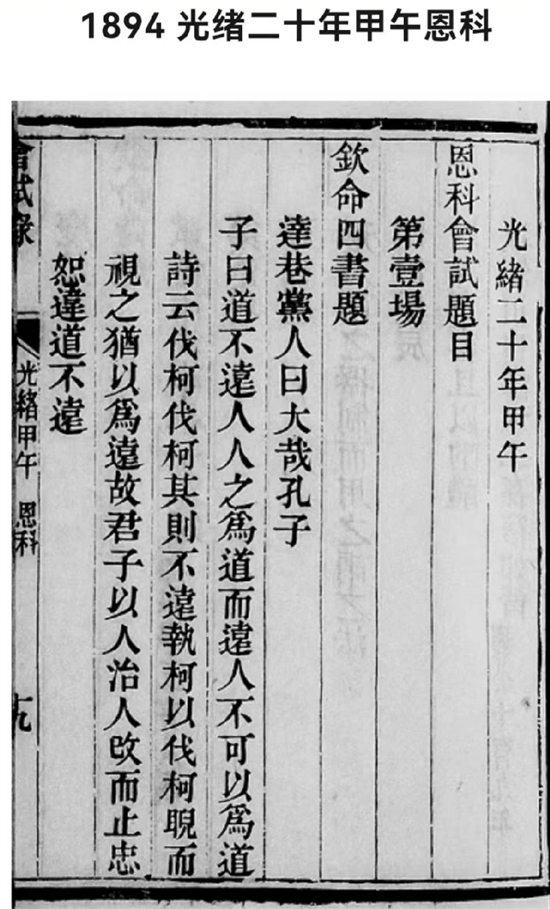 1894 光绪二十年甲午恩科
光緒二十年甲午
恩科會試題目
第壹場
欽命四書題
達巷黨人曰大哉孔子
子曰道不遠人人之爲道而遠人不可以爲道
詩云伐柯伐柯其則不遠執柯以伐柯睨而
視之猶以爲遠故君子以人治人改而止忠
恕違道不遠
會試錄
光緒甲午 恩科
十九